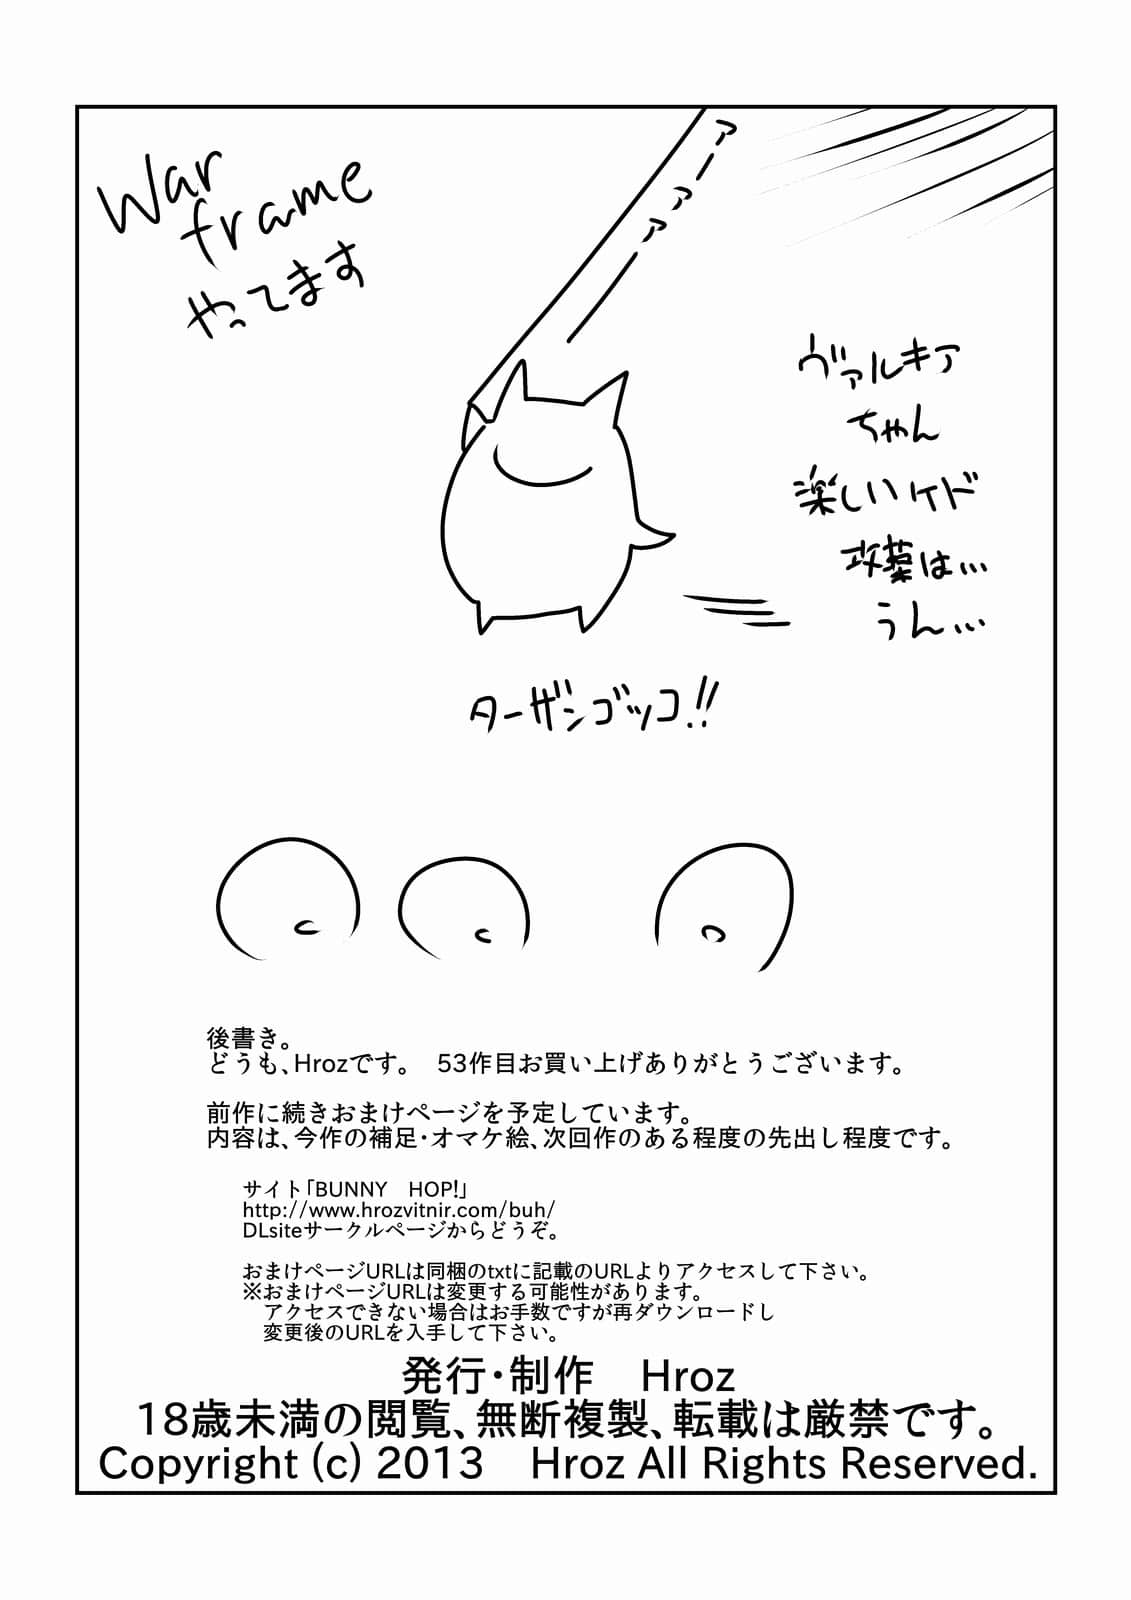 War
frame
やってます
アーアアー
ヴァルキア
ちゃん
楽しいケド
攻薬は…
うん…
ターザンゴッコ!!
後書き。
どうも、Hrozです。　53作目お買い上げありがとうございます。
前作に続きおまけページを予定しています。
内容は、今作の補足・オマケ絵、次回作のある程度の先出し程度です。
サイト「BUNNY　HOP!」
http://www.hrozvitnir.com/buh/
DLsiteサークルページからどうぞ。
おまけページURLは同梱のtxtに記載のURLよりアクセスして下さい。
※おまけページURLは変更する可能性があります。
アクセスできない場合はお手数ですが再ダウンロードし
変更後のURLを入手して下さい。
発行・制作　Hroz
18歳未満の閲覧、無断複製、転載は厳禁です。
Copyright (c) 2013　Hroz All Rights Reserved.